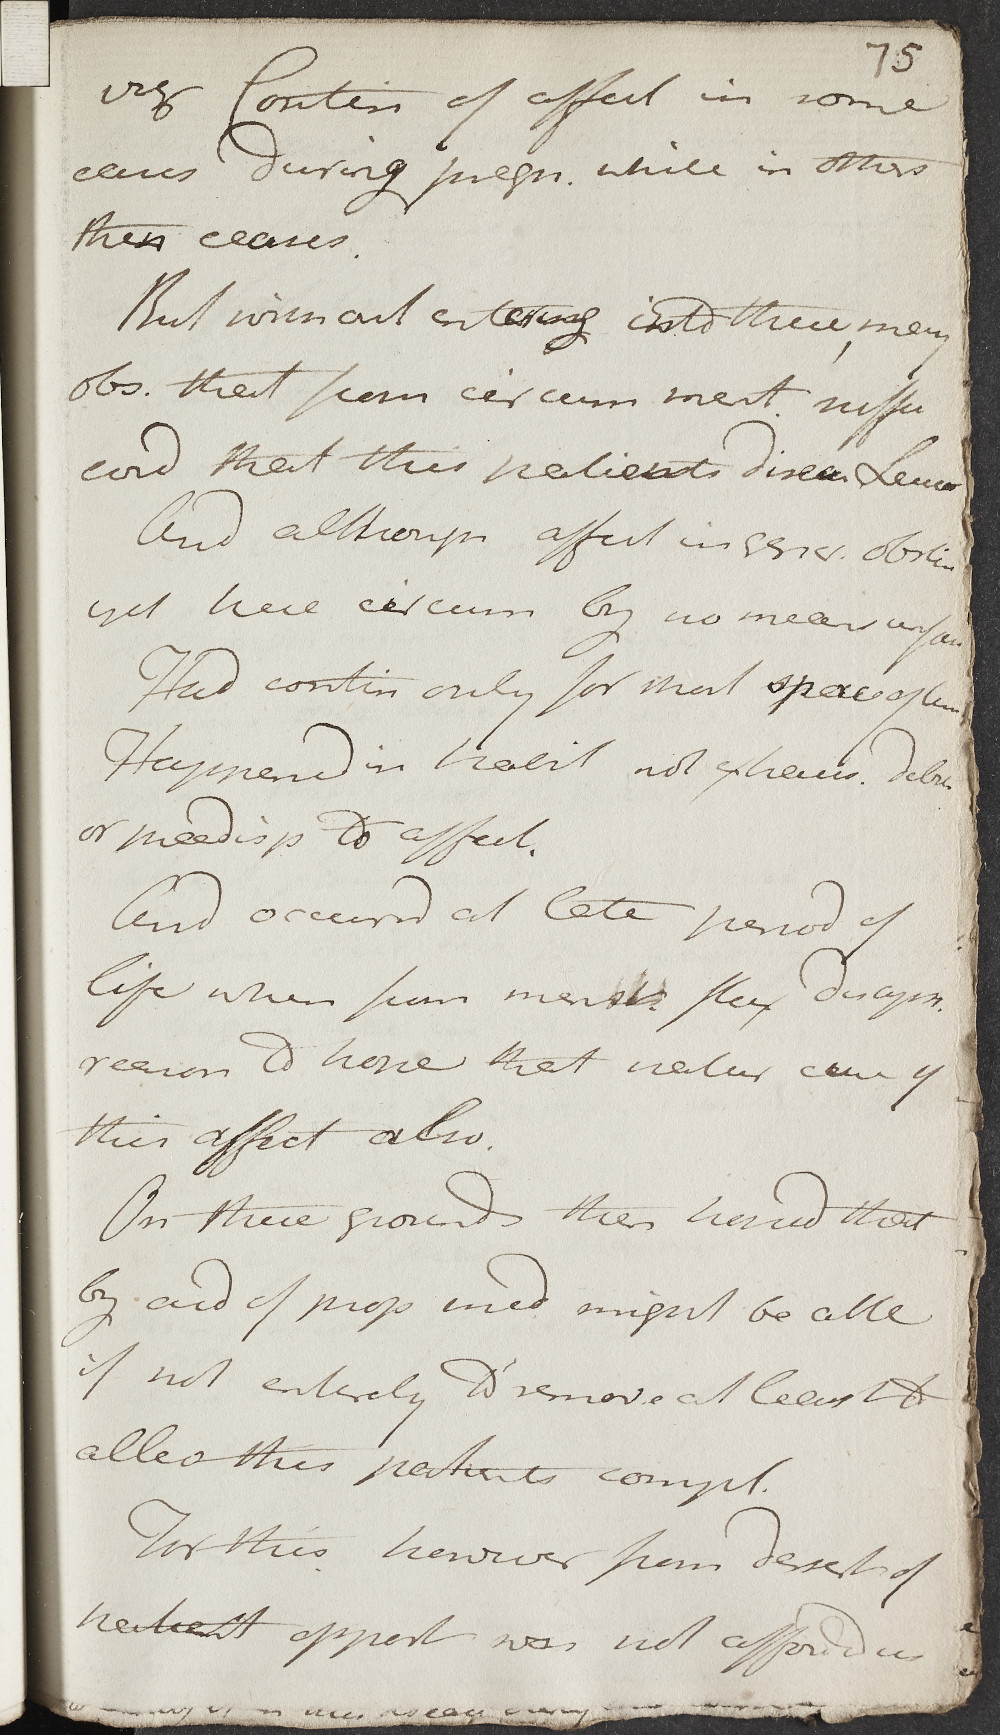 75
viz Contin of affect in some
cases during pregn. while in others
then ceases.
But without entering into these, may
obs. that from circum ment. suffic
evid that this patients disease Leucor
And although affect in gener. obstin
yet here circum by no means unfav
Had contin only for short space of time
Happened in habit not exhaus. debil
or predisp to affect.
And occurrd at late period of
life when from menstr flux disapp.
reason to hope that natur cure of
this affect also.
On these grounds then hoped that
by aid of prop med might be able
if not entirely to remove at least to
allev this patients compl.
For this however from desert of
patient opport was not afford us